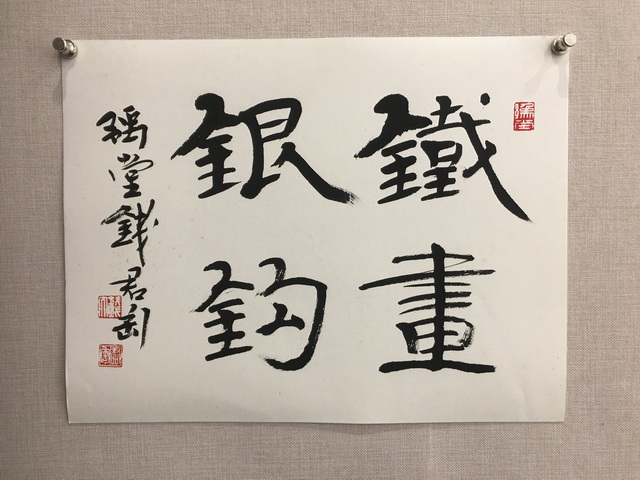 鐵畫
銀鈎
豫堂錢君匋